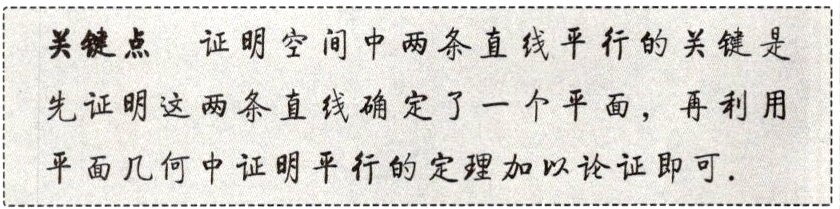 关键点 证明空间中两条直线平行的关键是
先证明这两条直线确定了一个平面，再利用
平面几何中证明平行的定理加以论证即可.